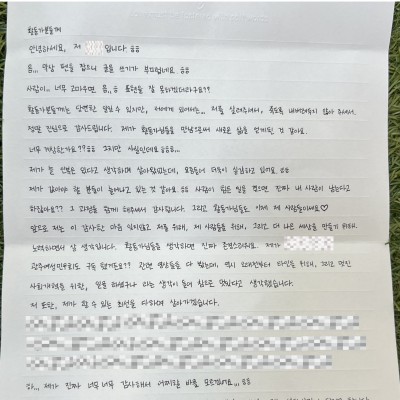 활동가분들께
안녕하세요, 저 입니다. ㅎㅎ
음... 막상 펜을 잡으니 글을 쓰기가 부끄럽네요. ㅎㅎ
사람이 너무 고마우면 음,,, 표현을 잘 못하겠더라구요??
활동가분들께는 당연한 일일 수 있지만, 저에게 있어서는... 저를 살려주셔서, 죽도록 내버려두지 않아 주셔서.
정말 진심으로 감사드립니다. 제가 활동가님들을 만남으로써 새로운 삶을 얻게된 것 같아요.
너무 거창한가요??ㅎㅎ 그치만 사실인데요ㅎㅎㅎ...
제가 늘 인복은 있다고 생각하며 살아왔었는데, 요즘들어 더욱이 실감하고 있어요. ㅎㅎ
제가 갚아야 할 분들이 늘어나고 있는 것 같아요. ㅎㅎ 사람이 힘든 일을 겪으면, 진짜 내 사람이 남는다고
하잖아요?? 그 과정을 함께 해주셔서 감사합니다. 그리고 활동가님들도 이제 제 사람들이세요♡
앞으로 저는 이 감사한 마음 잊지않고 저를 위해, 제 사람들을 위해, 그리고 더 나은 세상을 만들기 위해.
노력하면서 살 생각입니다. 활동가님들을 생각하면 진짜 존경스러워요. 제가
광주여성민우회도 구독 했거든요?? 관련 영상들을 다 봤는데, 역시 오래전부터 타인을 위해, 그리고 멋진
사회개혁을 위한, 일을 하셨구나 라는 생각이 들어 참으로 멋있다고 생각했습니다.
저 또한, 제가 할 수 있는 최선을 다하며 살아가겠습니다.
하,,, 제가 진짜 너무너무 감사해서 어찌할 바를 모르겠어요,,, ㅎㅎ